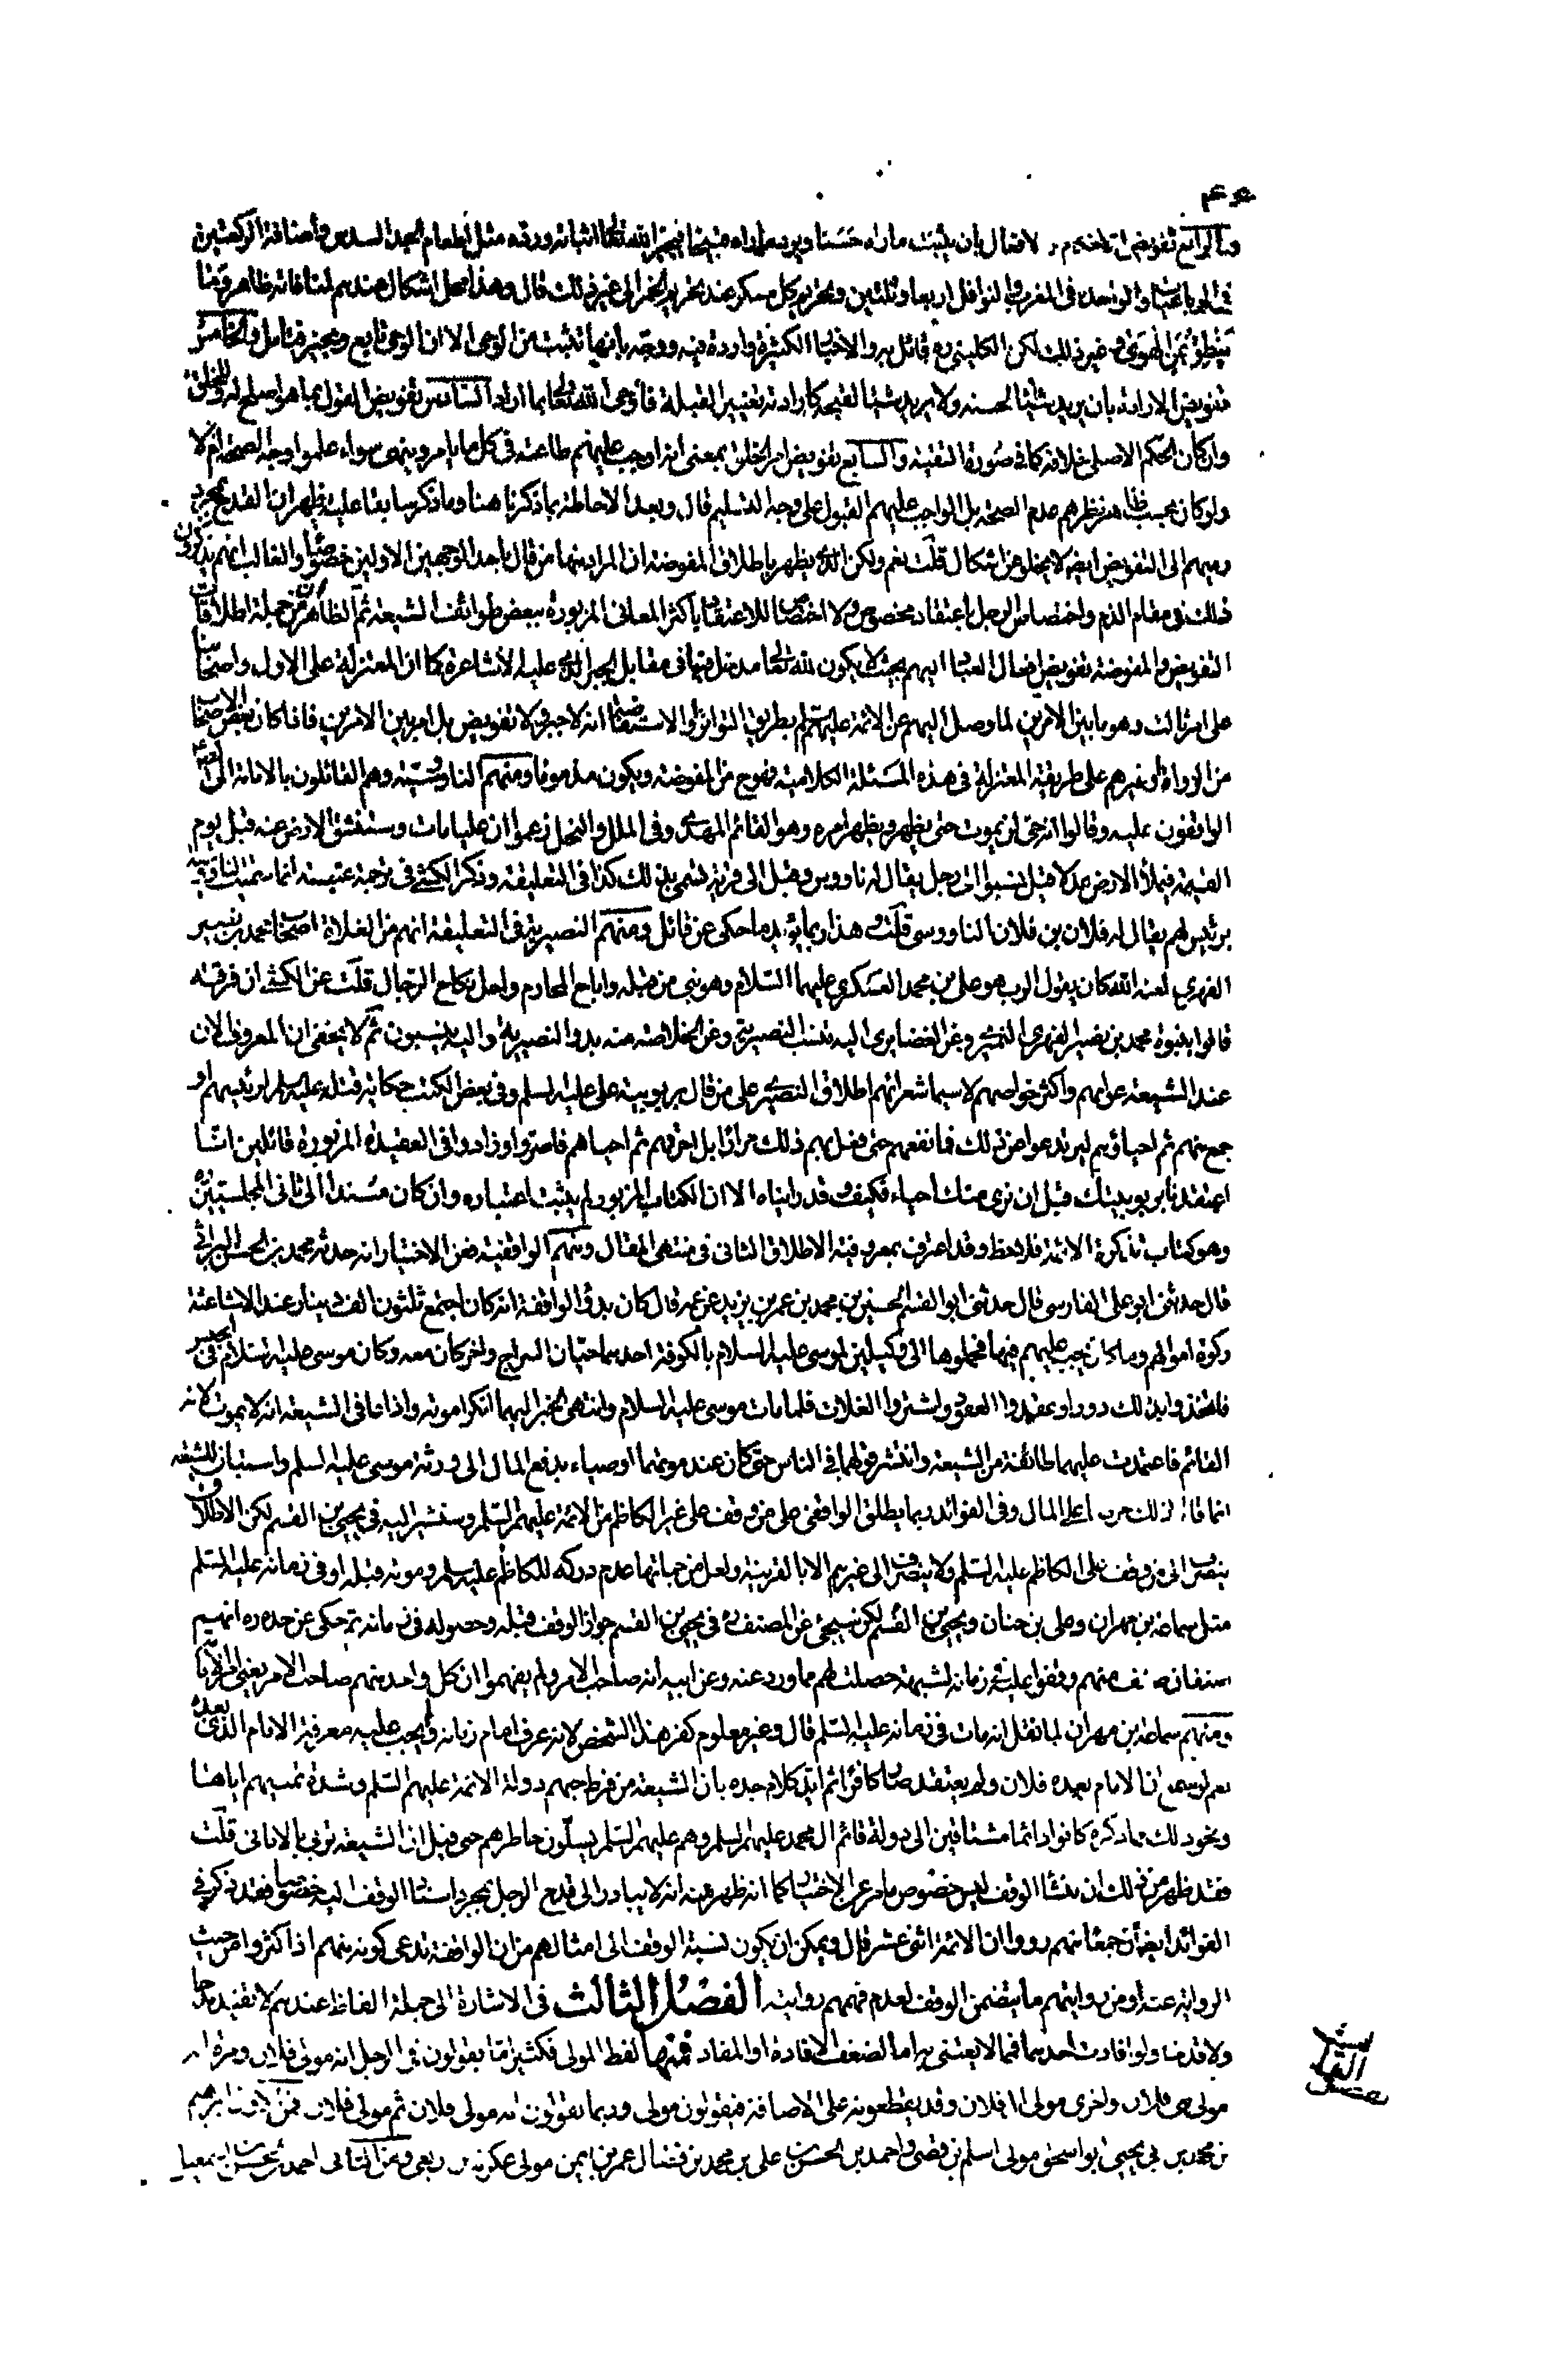 والرابع تفويض الاحكام والافعال بان يثبت ما راه حسنا ويرد ما راه قبيحا فيجيز الله تعالى اثباته ورده مثل اطعام الجد السدس واضافة الركعتين
في الرباعيات والواحدة في المغرب والنوافل اربعا وثلثين وتحريم كل مسكر عند تحريم الخمر الى غير ذلك قال وهذا محل اشكال عندهم لمنافاته ظاهر وما
ينطق عن الهوى وغير ذلك لكن الكليني ره قائل به والاخبار الكثيرة واردة فيه ووجه بانها تثبت من الوحى الا ان الوحى تابع ومجيز فتامل والخامس
تفويض الارادة بان يريد شيئا لحسنه ولا يريد شيئا لقبحه كارادته تغيير القبلة فاوحى الله تعالى بما اراد السادس تفويض القول بما هو اصلح له وللخلق
وان كان الحكم الاصلى خلافه كما في صورة التقية والسابع تفويض امر الخلق بمعنى انه اوجب عليهم طاعته في كل ما يامر وينهى سواء علموا وجه الصحة ام لا
ولو كان بحسب ظاهر نظرهم عدم الصحة بل الواجب عليهم القبول على وجه التسليم قال وبعد الاحاطة بما ذكرنا هنا وما ذكر سابقا عليه يظهر ان القدح بمجرد
رميهم الى التفويض ايضا لا يخلو عن اشكال قلت نعم ولكن الذى يظهر باطلاق المفوضة ان المراد منها من قال باحد الوجهين الاولين خصوصا والغالب انهم يذكرون
ذلك في مقام الذم واختصاص الرجل باعتقاد مخصوص ولا اختصاص للاعتقاد باكثر المعانى المزبورة ببعض طوائف الشيعة ثم الظاهر ان من جملة اطلاقات
التفويض والمفوضة تفويض افعال العباد اليهم بحيث لا يكون لله تعالى مدخل فيها في مقابل الجبر الذى عليه الاشاعرة كما ان المعتزلة على الاول واصحابنا
على امر ثالث وهو ما بين الامرين لما وصل اليهم عن الائمة عليهم السلام بطريق التواتر او الاستفاضة انه لا جبر ولا تفويض بل امر بين الامرين فاذا كان بعض الاصحاب
من الرواة او غيرهم على طريقة المعتزلة في هذه المسئلة الكلامية فهو ح من المفوضة ويكون مذموما ومنهم الناووسية وهم القائلون بالامامة الى الصادق
الواقفون عليه وقالوا انه حى لن يموت حتى يظهر ويظهر امره وهو القائم المهدى وفى الملل والنحل زعموا ان عليا مات وستنشق الارض عنه قبل يوم
القيمة فيملأ الارض عدلا قيل نسبوا الى رجل يقال له ناووس وقيل الى قرية تسمى بذلك كذا في التعليقة وذكر الكشى في ترجمة عنبسة انما سميت الناووسية
برئيس لهم يقال له فلان بن فلان الناووسى قلت وهذا ربما يؤيد ما حكى عن قائل ومنهم النصيرية في التعليقة انهم من الغلاة اصحاب محمد بن نصير
الفهري لعنه الله كان يقول الرب هو على بن محمد العسكري عليهما السلام وهو نبى من قبله واباح المحارم واحل نكاح الرجال قلت عن الكشى ان فرقته
قالوا بنبوة محمد بن نصير الفهرى النميرى وعن الغضايرى اليه تنسب النصيرية وعن الخلاصة منه بدو النصيرية واليه ينسبون ثم لا يخفى ان المعروف الان
عند الشيعة عوامهم واكثر خواصهم لا سيما شعرائهم اطلاق النصيرى على من قال بربوبية على عليه السلم وفى بعض الكتب حكاية قتله عليه السلم لرئيسهم او
جمع منهم ثم احيائهم ليرتدعوا عن ذلك فما نفعهم حتى فعل بهم ذلك مرارا بل احرقهم ثم احياهم فاصروا وزادوا في العقيدة المزبورة قائلين انا
اعتقدنا بربوبيتك قبل ان نرى منك احياء فكيف وقد رايناه الا ان الكتاب المزبور لم يثبت اعتباره وان كان مسندا الى ثانى المجلسيين
وهو كتاب تذكرة الائمة فلاحظ وقد اعترف بمعروفية الاطلاق الثانى في منتهى المقال ومنهم الواقفية فعن الاختيار انه حدثه محمد بن الحسن البراثى
قال حدثنى ابو على الفارسى قال حدثنى ابو القسم الحسين بن محمد بن عمر بن يزيد عن عمه قال كان بدو الواقفة انه كان اجتمع ثلثون الف دينار عند الاشاعثة
زكوة اموالهم وما كان يجب عليهم فيها فحملوها الى وكيلين لموسى عليه السلام بالكوفة احدهما حيان السراج واخر كان معه وكان موسى عليه السلام في الحبس
فاتخذوا بذلك دورا وعقدوا العقود واشتروا الغلات فلما مات موسى عليه السلام وانتهى الخبر اليهما انكرا موته واذاعا في الشيعة انه لا يموت لانه
القائم فاعتمدت عليهما طائفة من الشيعة وانتشر قولهما في الناس حتى كان عند موتهما اوصياء بدفع المال الى ورثة موسى عليه السلم واستبان للشيعة
انما قالا ذلك حرصا على المال وفى الفوائد ربما يطلق الواقفى على من وقف على غير الكاظم من الائمة عليهم السلم وسنشير اليه في يحيى بن القسم لكن الاطلاق
ينصرف الى من وقف على الكاظم عليه السلم ولا ينصرف الى غيرهم الا بالقرينة ولعل من جملتها عدم دركه للكاظم عليه السلم وموته قبله او في زمانه عليه السلم
مثل سماعة بن مهران وعلى بن حنان ويحيى بن القسم لكن سيجئ عن المصنف ره في يحيى بن القسم جواز الوقف قبله وحصوله في زمانه ثم حكى عن جده ره انهم
صنفان صنف منهم وقفوا عليه في زمانه لشبهة حصلت لهم مما ورد عنه وعن ابيه انه صاحب الامر ولم يفهموا ان كل واحد منهم صاحب الامر يعنى امر الامامة
ومنهم سماعة بن مهران لما نقل انه مات في زمانه عليه السلم قال وغير معلوم كفر هذا الشخص لانه عرف امام زمانه ولم يجب عليه معرفة الامام الذى بعده
نعم لو سمع ان الامام بعده فلان ولم يعتقد صار كافرا ثم ايد كلام جده بان الشيعة من فرط حبهم دولة الائمة عليهم السلم وشدة تمنيهم اياها
ونحو ذلك مما ذكره كانوا دائما مشتاقين الى دولة قائم ال محمد عليهم السلم وهم عليهم السلم يسلّون خاطرهم حتى قيل ان الشيعة تربى بالامانى قلت
فقد ظهر من ذلك ان منشا الوقف ليس خصوص ما مر عن الاختيار كما انه ظهر منه انه لا يبادر الى قدح الرجل بمجرد اسناد الوقف اليه خصوصا فقد ذكر في
الفوائد ايضا ان جمعا منهم رووا ان الائمة اثنى عشر قال ويمكن ان يكون نسبة الوقف الى امثالهم من ان الواقفة تدعى كونه منهم اذ اكثروا من حيث
الرواية عنه او من روايتهم ما يتضمن الوقف لعدم فهمهم روايته الفصل الثالث في الاشارة الى جملة الفاظ عندهم لا تفيد مدحا
ولا قدحا ولو افادت احدهما فمما لا يعتنى به اما لضعف الافادة او المفاد فمنها لفظ المولى فكثيرا ما يقولون في الرجل انه مولى فلان ومرة
مولى بنى فلان واخرى مولى ال فلان وقد يقطعونه على الاضافة فيقولون مولى وربما يقولون انه مولى فلان ثم مولى فلان فمن الاول ابرهيم
بن محمد بن ابى يحيى ابو اسحق مولى اسلم بن قصى واحمد بن الحسن بن على بن محمد بن فضال عمر بن ايمن مولى عكرمة بن ربعى ومن الثانى احمد بن الحسن بن اسمعيل